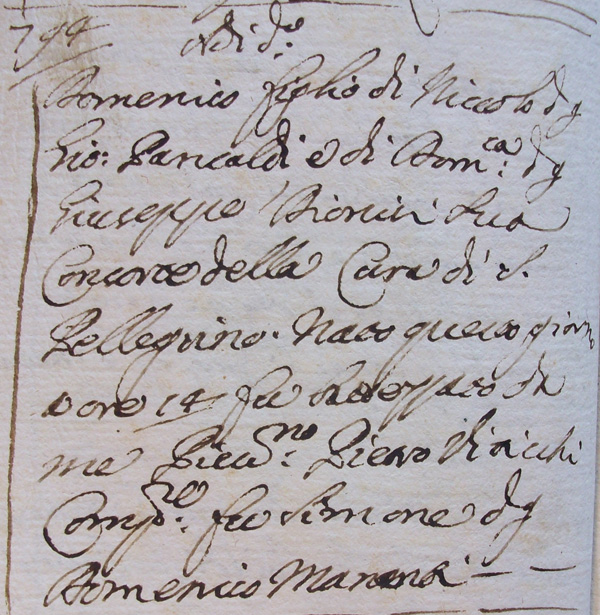 794 Adi d.o
Domenico figlio di Niccolo d g
Gio: Pancaldi e di Dom.ca d g
Giuseppe Bionini sua
Consorte della Cura di S.
Pellegrino. Nato questo giorno
a ore 14 fu battezzato da
me Piev.no Pietro
Comp.re fu Simone d g
Domenico